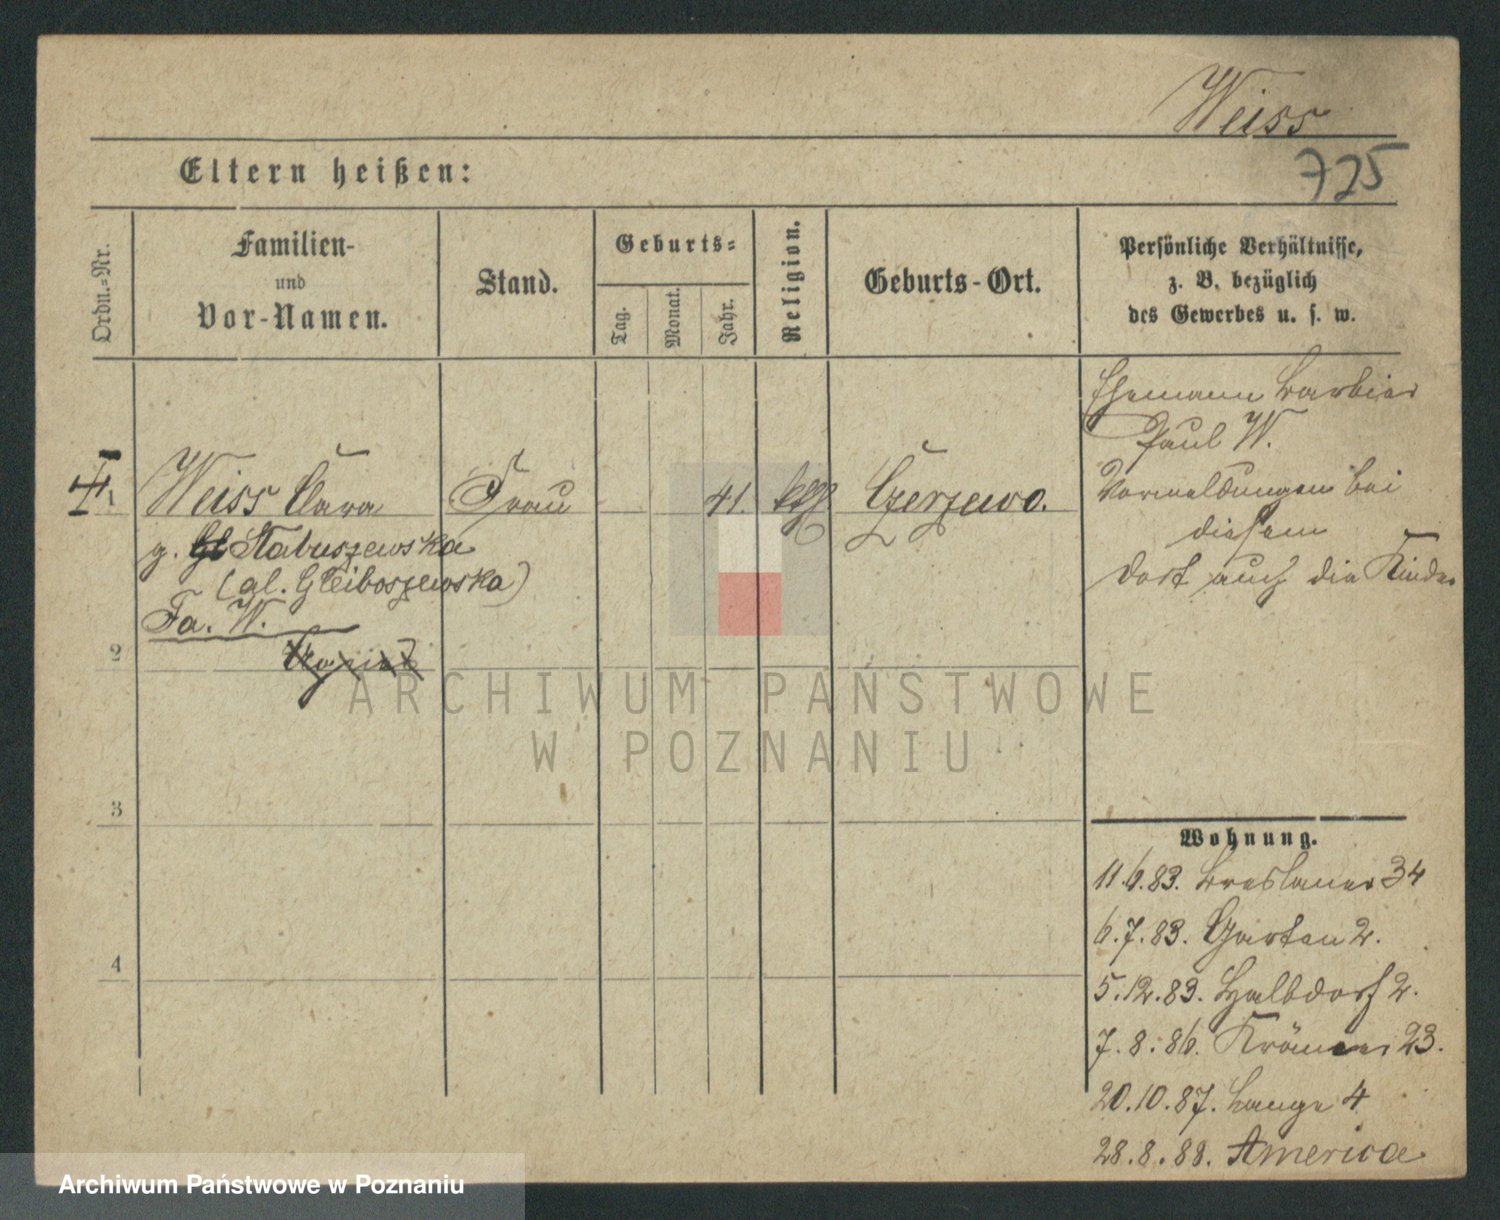 Weiss
725
Eltern heißen:
Ordn.=Nr.
Familien-
und
Vor-Namen.
Stand.
Geburts=
Tag.
Monat.
Jahr.
Religion.
Geburts-Ort.
Persönliche Verhältnisse,
z. B. bezüglich
des Gewerbes u. s. w.
Ehemann Barbier
Paul W.
Vormeldungen bei
diesem
dort auch die Kinder
1
Weiss Clara
Frau
41.
kth
Czerzewo.
g. Stabuszewska
(al. Gleiboszewska)
Fa. W.
2
3
4
Wohnung.
11.6.83. Breslauer 34
6.7.83. Garten 2.
5.12.83. Halbdorf 2.
7.8.86. Krämer 23.
20.10.87. Lange 4
28.8.88. America
ARCHIWUM PAŃSTWOWE
W POZNANIU
Archiwum Państwowe w Poznaniu